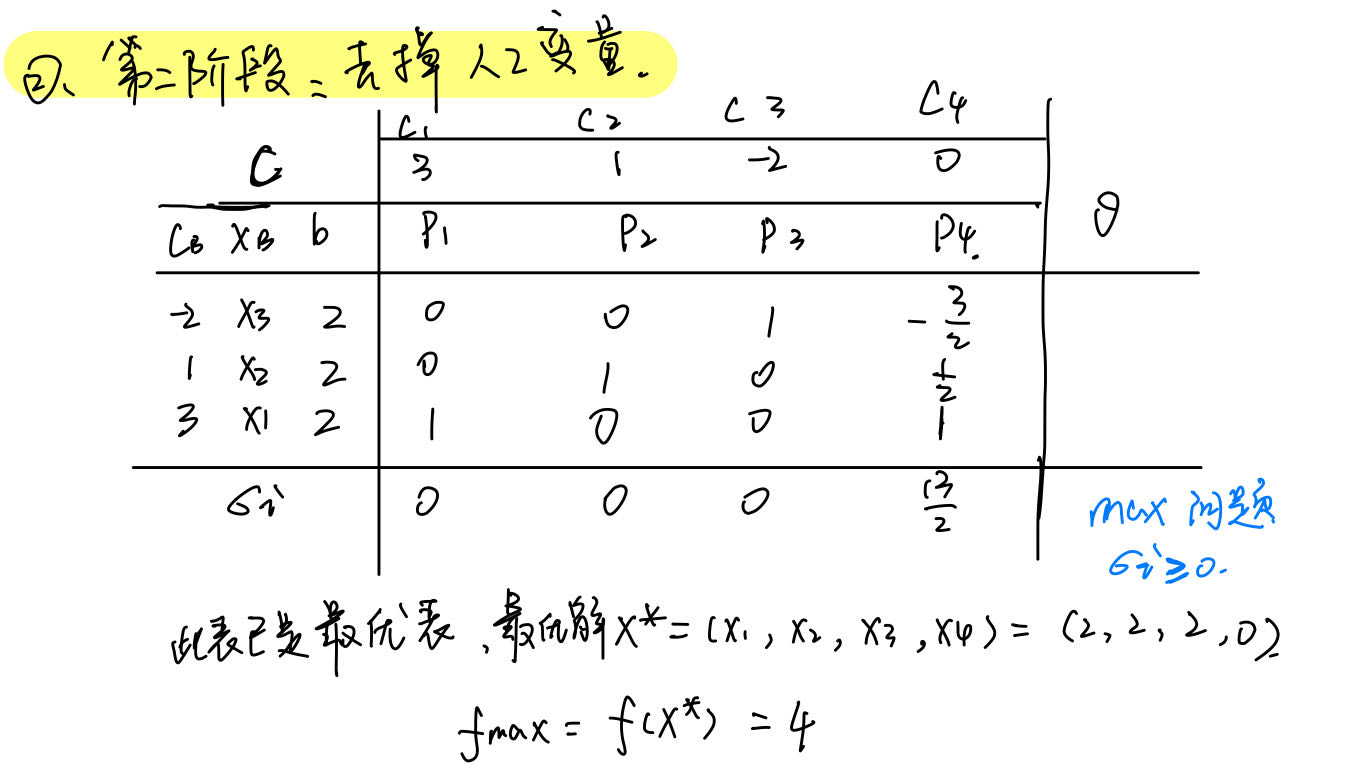 ②、第二阶段：去掉人工变量.
C₁ C₂ C3 C4
C 3 1 -2 0
CB XB b P₁ P₂ P3 P4. θ
-2 X3 2 0 0 1 -3/2
1 X₂ 2 0 1 0 1/2
3 X1 2 1 0 0 1
σi 0 0 0 13/2
max 问题
σi≥0.
此表已是最优表，最优解X*=(X₁, X₂, X3, X4)= (2, 2, 2, 0)
fmax = f(X*) = 4